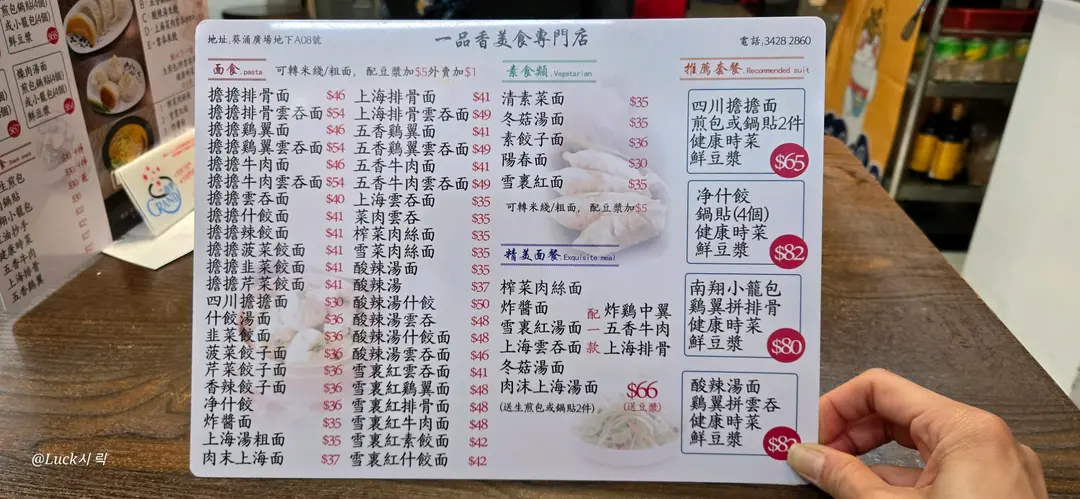 煎包或鍋貼(4個)
或小籠包(4個)
鮮豆漿
燥肉湯面
煎包或鍋貼(4個)
或小籠包(4個)
鮮豆漿
GRAND
地址.葵涌廣場地下A08號
一品香美食專門店
電話.3428 2860
面食.pasta 可轉米綫/粗面，配豆漿加$5外賣加$1
擔擔排骨面 $46
擔擔排骨雲吞面 $54
擔擔鷄翼面 $46
擔擔鷄翼雲吞面 $54
擔擔牛肉面 $46
擔擔牛肉雲吞面 $54
擔擔雲吞面 $40
擔擔什餃面 $41
擔擔辣餃面 $41
擔擔菠菜餃面 $41
擔擔韭菜餃面 $41
擔擔芹菜餃面 $41
四川擔擔面 $30
什餃湯面 $36
韭菜餃面 $36
菠菜餃子面 $36
芹菜餃子面 $36
香辣餃子面 $36
净什餃 $36
炸醬面 $35
上海湯粗面 $35
肉末上海面 $37
上海排骨面 $41
上海排骨雲吞面 $49
五香鷄翼面 $41
五香鷄翼雲吞面 $49
五香牛肉面 $41
五香牛肉雲吞面 $49
上海雲吞面 $35
菜肉雲吞 $35
榨菜肉絲面 $35
雪菜肉絲面 $35
酸辣湯面 $35
酸辣湯 $37
酸辣湯什餃 $50
酸辣湯雲吞 $48
酸辣湯什餃面 $48
酸辣湯雲吞面 $46
雪裏紅雲吞面 $41
雪裏紅鷄翼面 $48
雪裏紅排骨面 $48
雪裏紅牛肉面 $48
雪裏紅素餃面 $42
雪裏紅什餃面 $42
素食類.Vegetarian
清素菜面 $35
冬菇湯面 $35
素餃子面 $36
陽春面 $30
雪裏紅面 $35
可轉米綫/粗面，配豆漿加$5
精美面餐.Exquisite meal
榨菜肉絲面
炸醬面
雪裏紅湯面
上海雲吞面
冬菇湯面
肉沫上海湯面
(送生煎包或鍋貼2件)
配一款
炸鷄中翼
五香牛肉
上海排骨
$66
(送豆漿)
推薦套餐.Recommended suit
四川擔擔面
煎包或鍋貼2件
健康時菜
鮮豆漿
$65
净什餃
鍋貼(4個)
健康時菜
鮮豆漿
$82
南翔小籠包
鷄翼拼排骨
健康時菜
鮮豆漿
$80
酸辣湯面
鷄翼拼雲吞
健康時菜
鮮豆漿
$82
@Luck시락